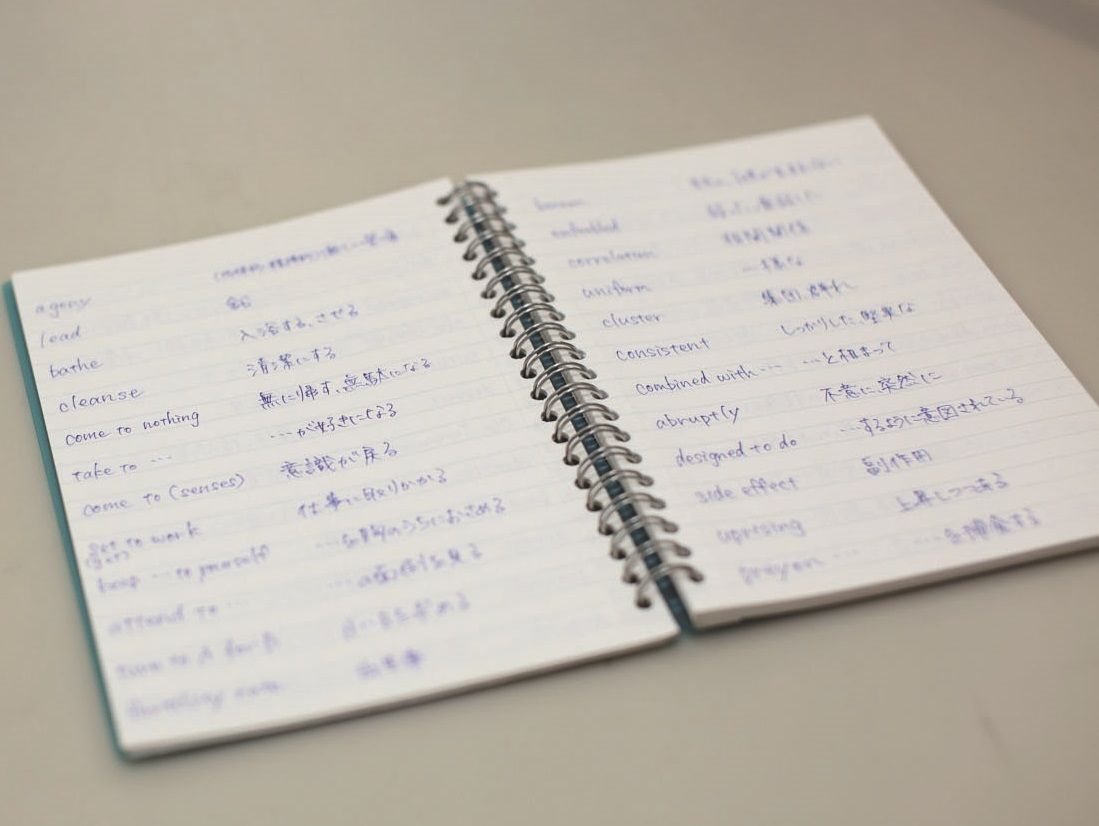 agony (肉体的、精神的)激しい苦痛
lead 鉛
bathe 入浴する、させる
cleanse 清潔にする
come to nothing 無に帰す、無駄になる
take to … …が好きになる
come to (senses) 意識が戻る
get to work 仕事に取りかかる
keep … to yourself …を胸のうちにおさめる
attend to … …の面倒を見る
turn to A for B
barren
enfeebled
correlation 相関関係
uniform 一様な
cluster 集団、群れ
consistent しっかりした、堅実な
combined with … …と相まって
abruptly 不意に突然に
designed to do …するように意図されている
side effect 副作用
uprising 上昇しつつある
prey on … …を捕食する